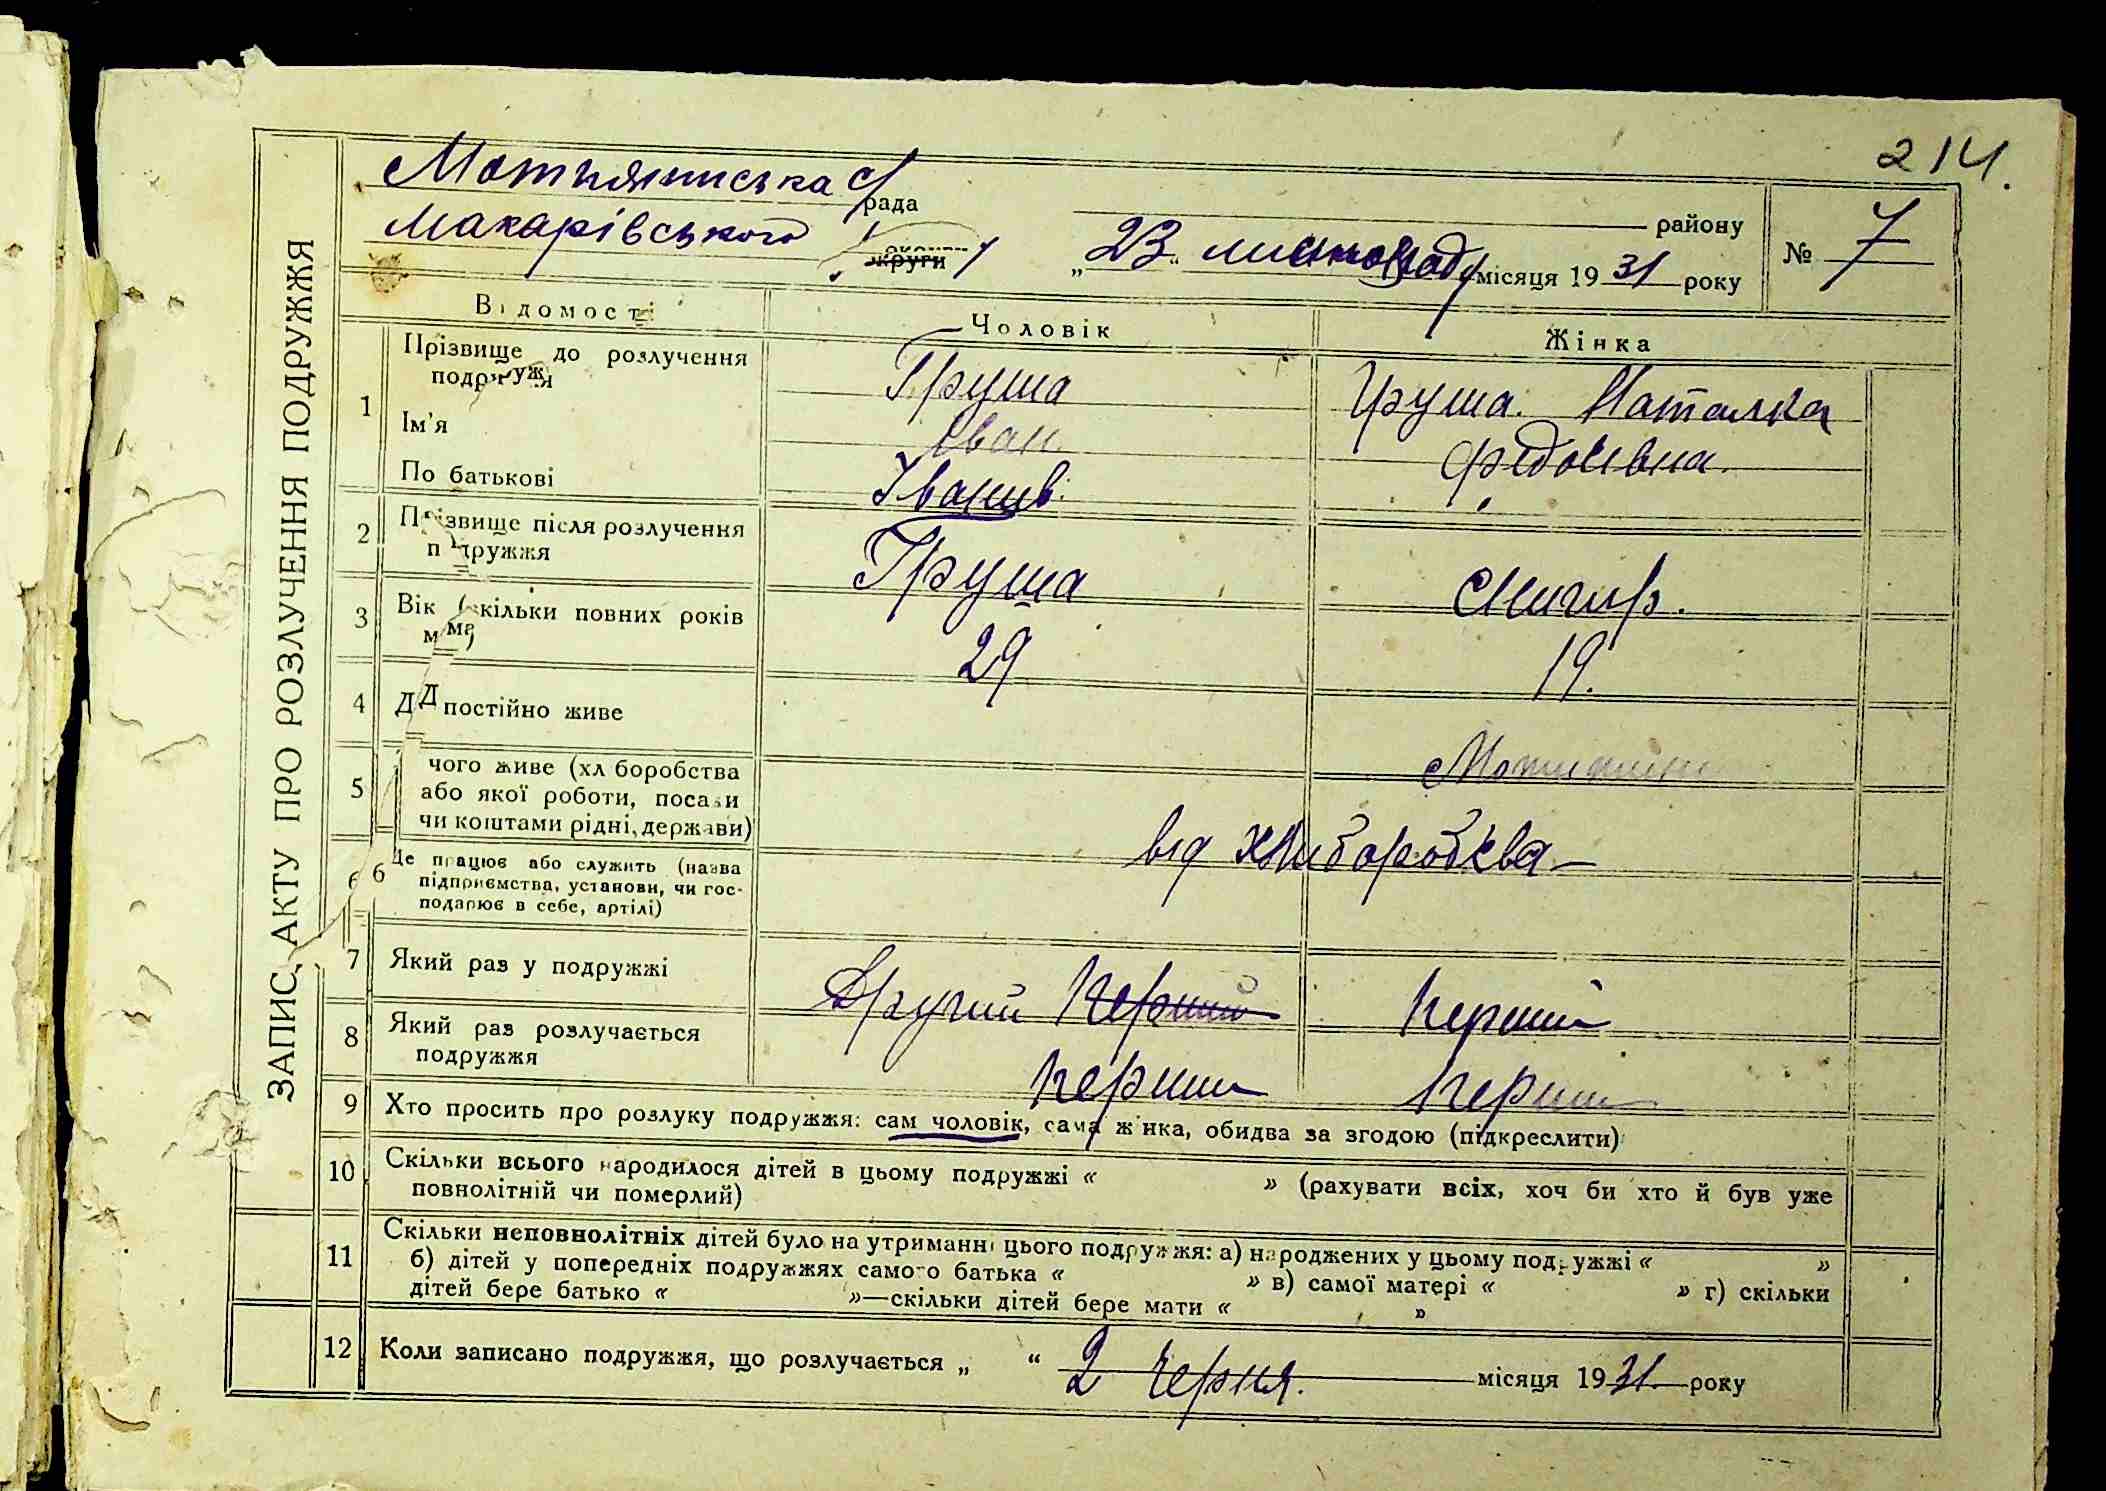 214.
ЗАПИС АКТУ ПРО РОЗЛУЧЕННЯ ПОДРУЖЖЯ
Мотижинська с/рада
Макарівського округи району
„23“ листопаду місяця 1931 року
№ 7
Відомості Чоловік Жінка
1 Прізвище до розлучення подружжя Груша Груша Наталка
Ім'я Іван Федосівна
По батькові Іванів.
2 Прізвище після розлучення подружжя Груша
3 Вік (скільки повних років має) 29 19.
4 Де постійно живе Мотижин
5 чого живе (хліборобства
або якої роботи, посади
чи коштами рідні, держави) від хліборобства
6 Де працює або служить (назва
підприємства, установи, чи гос-
подарює в себе, артілі)
7 Який раз у подружжі Другий Перший Перший
8 Який раз розлучається
подружжя Перший Перший
9 Хто просить про розлуку подружжя: сам чоловік, сама жінка, обидва за згодою (підкреслити)
10 Скільки всього народилося дітей в цьому подружжі « » (рахувати всіх, хоч би хто й був уже
повнолітній чи померлий)
11 Скільки неповнолітніх дітей було на утриманні цього подружжя: а) народжених у цьому подружжі « »
б) дітей у попередніх подружжях самого батька « » в) самої матері « » г) скільки
дітей бере батько « »—скільки дітей бере мати « »
12 Коли записано подружжя, що розлучається „ “ 2 черня. місяця 1931. року